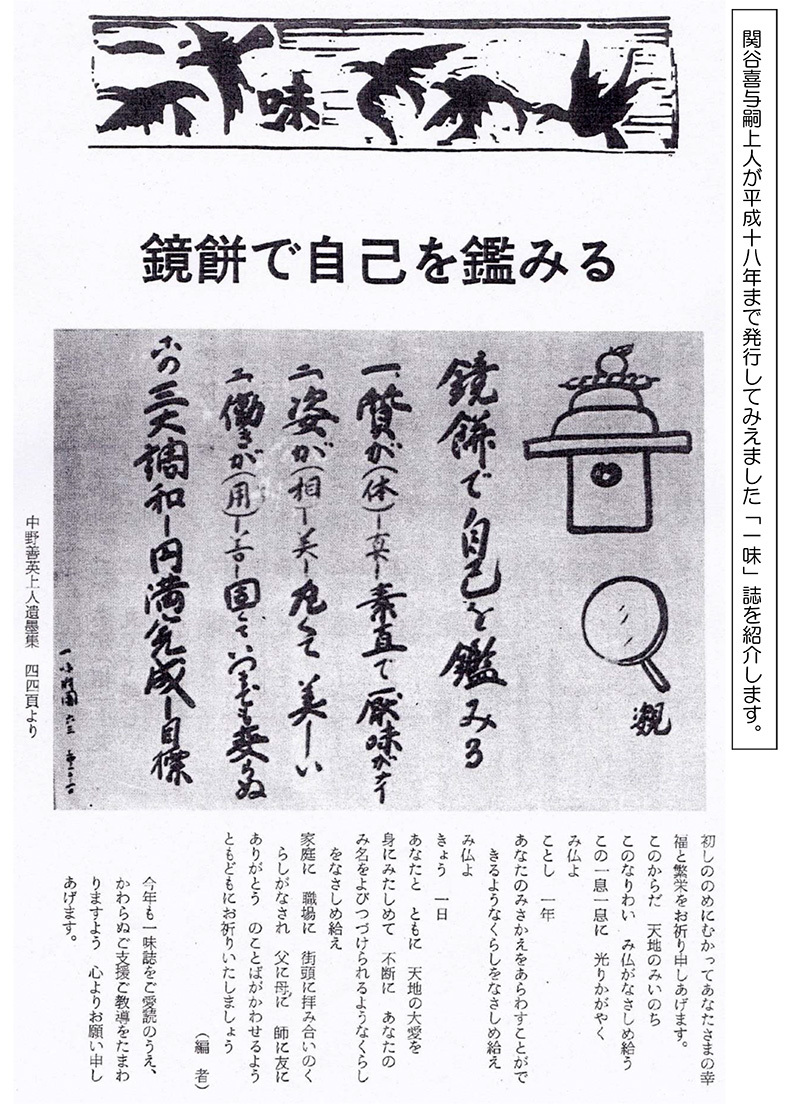 関谷喜与嗣上人が平成十八年まで発行してみえました「一味」誌を紹介します。
一味
鏡餅で自己を鑑みる
観
鏡餅で自己を鑑みる
一、質が(体)―真―素直で厭味がナイ
二、姿が(相)―美―丸くて美しい
三、働きが(用)―善―固くていつまでも変らぬ
この三大調和―円満完成―目標
中野善英上人遺墨集 四四頁より
初しののめにむかってあなたさまの幸
福と繁栄をお祈り申しあげます。
このからだ 天地のみいのち
このなりわい み仏がなさしめ給う
この一息一息に 光りかがやく
み仏よ
ことし 一年
あなたのみさかえをあらわすことがで
きるようなくらしをなさしめ給え
み仏よ
きょう 一日
あなたと ともに 天地の大愛を
身にみたしめて 不断に あなたの
み名をよびつづけられるようなくらし
をなさしめ給え
家庭に 職場に 街頭に拝み合いのく
らしがなされ 父に母に 師に友に
ありがとう のことばがかわせるよう
ともどもにお祈りいたしましょう
(編 者)
今年も一味誌をご愛読のうえ、
かわらぬご支援ご教導をたまわ
りますよう 心よりお願い申し
あげます。